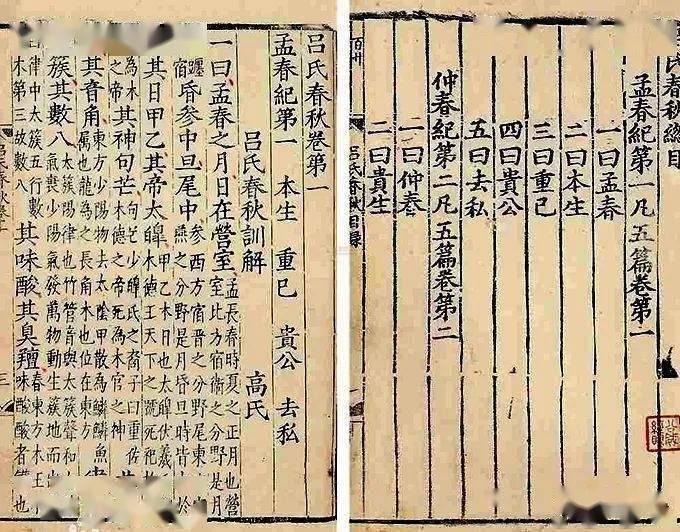 氏春秋總目
孟春紀第一凡五篇卷第一
一曰孟春
二曰本生
三曰重己
四曰貴公
五曰去私
仲春紀第二凡五篇卷第二
一曰仲春
二曰貴生
呂氏春秋目錄
呂氏春秋卷第一
孟春紀第一 本生 重己 貴公 去私
呂氏春秋訓解 高氏
一曰孟春之月日在營室 孟長春時夏之正月也營室北方宿衛之分野是月
躔宿 昏參中旦尾中 參西方宿晉之分野尾東燕之分野是月昏旦時皆於
其日甲乙其帝太皞 甲乙木日也太皞伏羲木德王天下之號死祀
為木之帝 其神句芒 句芒少皞氏之裔子曰重佐木德之帝死為木官之神
其音角 東方少陽物去太陰甲散為鱗鱗魚屬也龍為之長角木也位在東方
簇其數八 太簇陽律也竹管音與太簇聲和氣衰少陽氣發萬物動生簇地而出
律中太簇五行數木第三故數八 其味酸其臭羶 春東方木王味酸酸者也